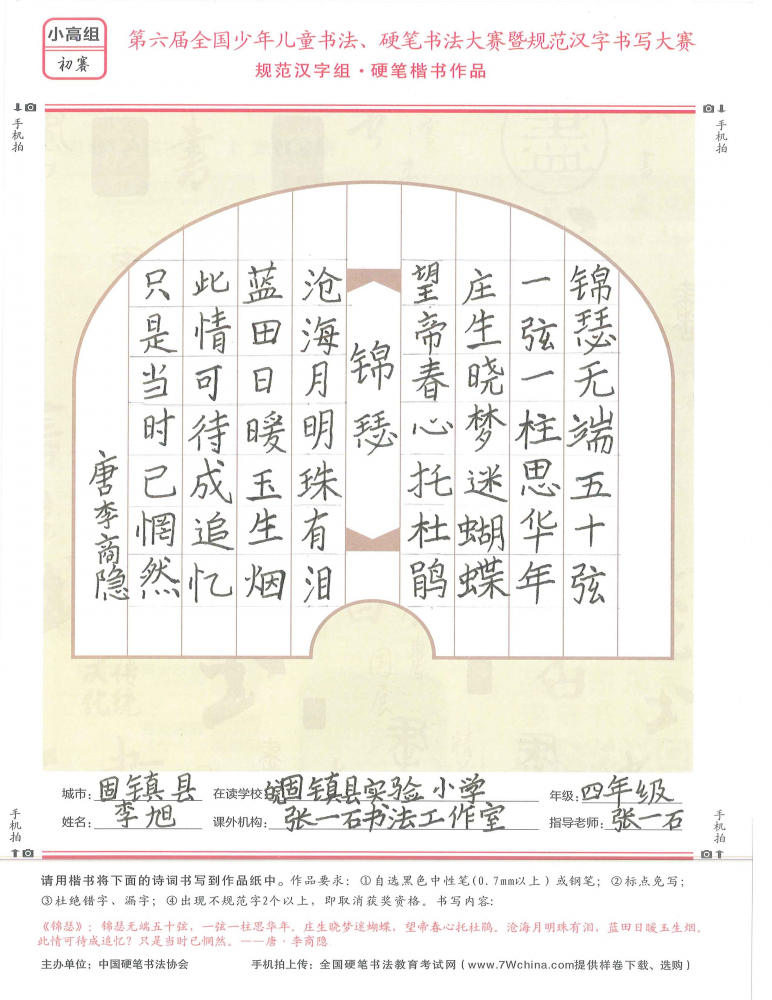 小高组
初赛
第六届全国少年儿童书法、硬笔书法大赛暨规范汉字书写大赛
规范汉字组·硬笔楷书作品
手机拍
手机拍
锦瑟无端五十弦
一弦一柱思华年
庄生晓梦迷蝴蝶
望帝春心托杜鹃
锦瑟
沧海月明珠有泪
蓝田日暖玉生烟
此情可待成追忆
只是当时已惘然
唐李商隐
城市：固镇县 在读学校：固镇县实验小学 年级：四年级
姓名：李旭 课外机构：张一石书法工作室 指导老师：张一石
手机拍
手机拍
请用楷书将下面的诗词书写到作品纸中。作品要求：①自选黑色中性笔(0.7mm以上）或钢笔；②标点免写；
③杜绝错字、漏字；④出现不规范字2个以上，即取消获奖资格。书写内容：
《锦瑟》：锦瑟无端五十弦，一弦一柱思华年。庄生晓梦迷蝴蝶，望帝春心托杜鹃。沧海月明珠有泪，蓝田日暖玉生烟。
此情可待成追忆？只是当时已惘然。——唐·李商隐
主办单位：中国硬笔书法协会 手机拍上传：全国硬笔书法教育考试网（www.7Wchina.com提供样卷下载、选购）